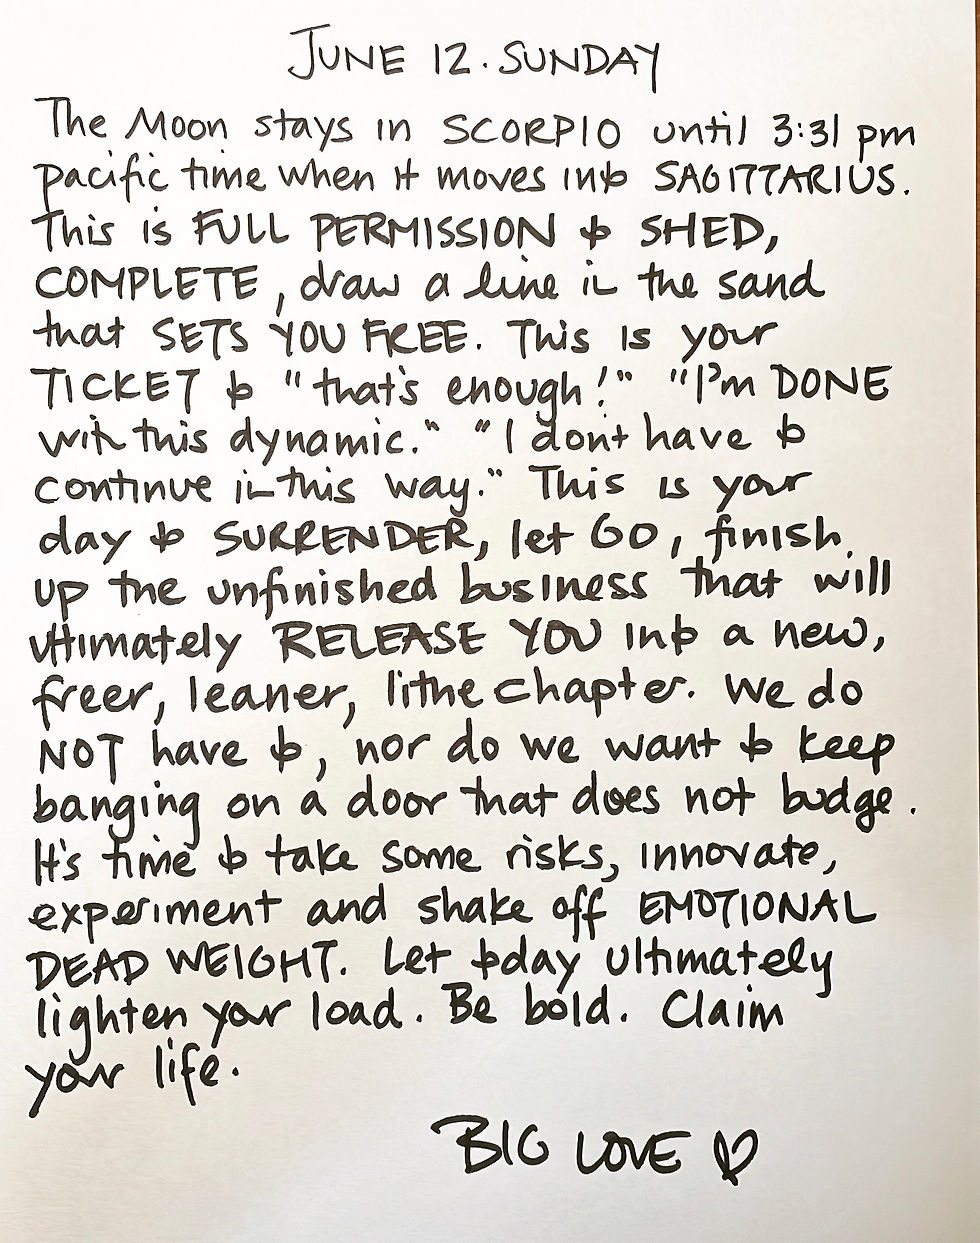 JUNE 12. SUNDAY
The Moon stays in SCORPIO until 3:31 pm
pacific time when it moves into SAGITTARIUS.
This is FULL PERMISSION to SHED,
COMPLETE, draw a line in the sand
that SETS YOU FREE. This is your
TICKET to "that's enough!" "I'm DONE
with this dynamic." "I don't have to
continue in this way." This is your
day to SURRENDER, let GO, finish
up the unfinished business that will
ultimately RELEASE YOU into a new,
freer, leaner, lithe chapter. We do
NOT have to, nor do we want to keep
banging on a door that does not budge.
It's time to take some risks, innovate,
experiment and shake off EMOTIONAL
DEAD WEIGHT. Let today ultimately
lighten your load. Be bold. Claim
your life.
BIG LOVE ♡